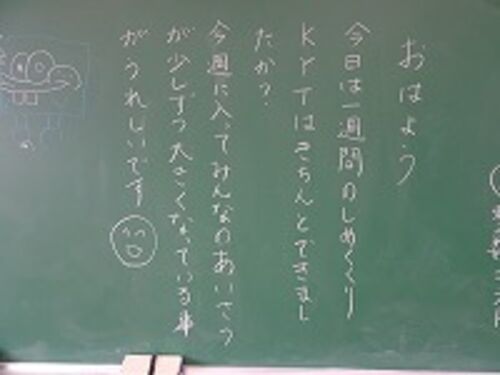 おはよう
今日は一週間のしめくくり
KYTはきちんとできまし
たか？
今週に入ってみんなのあいさつ
が少しずつ大きくなっている事
がうれしいです